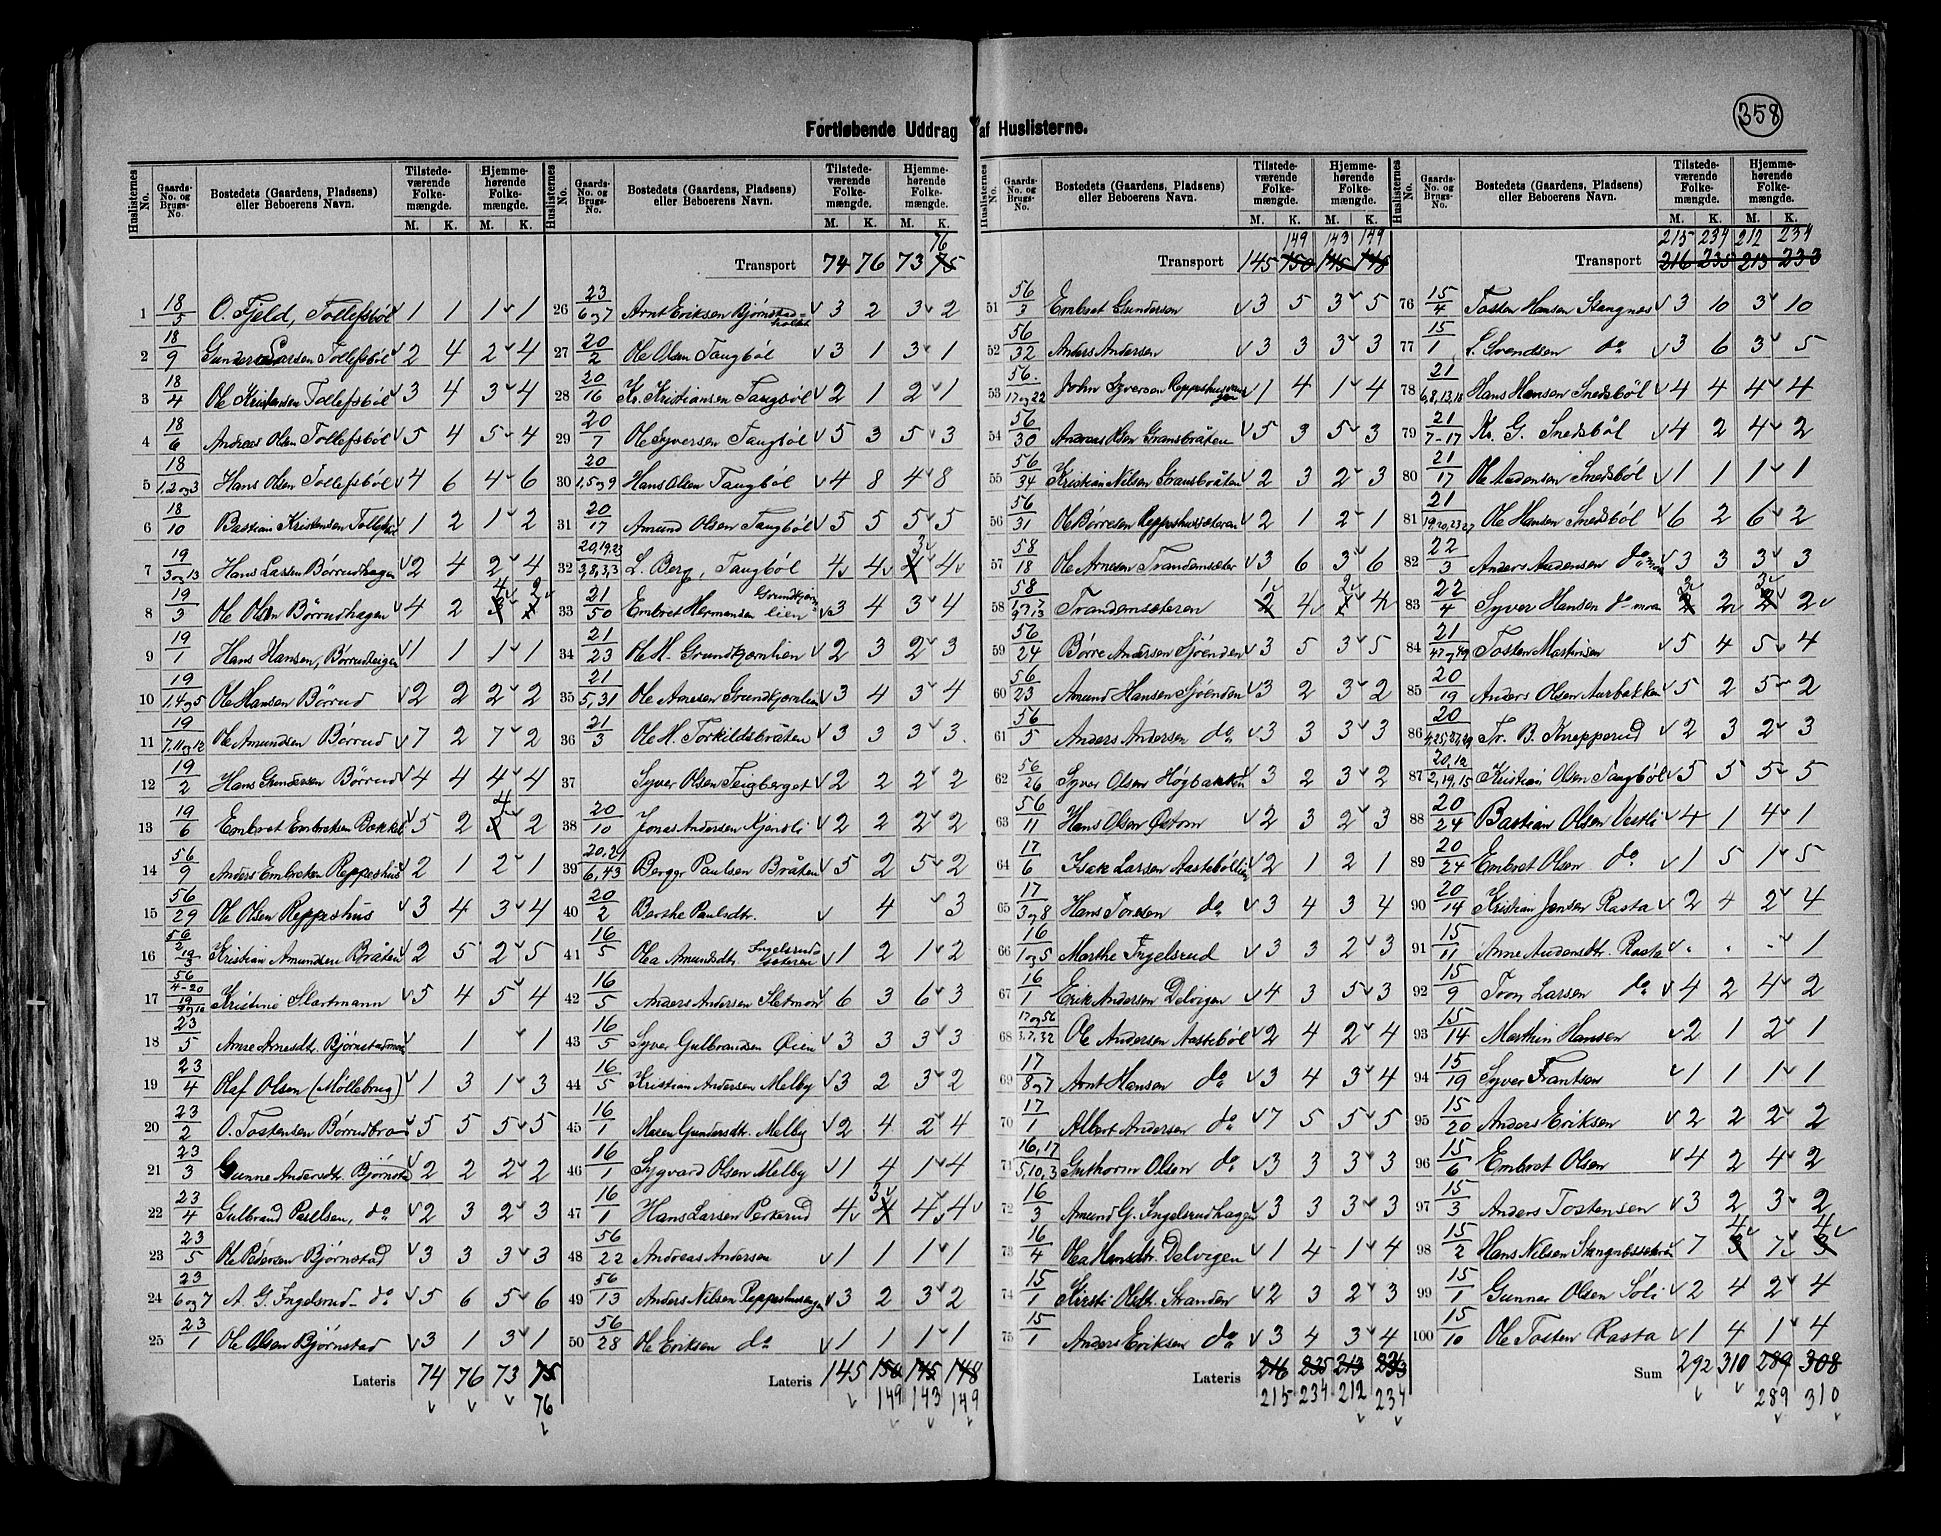 358
Fortløbende Uddrag af Huslisterne.
Huslisternes No. | Gaards-No. og Brugs-No. | Bostedets (Gaardens, Pladsens) eller Beboerens Navn. | Tilstedeværende Folkemængde. M. K. | Hjemmehørende Folkemængde. M. K.
1 18/5 O. Fjeld, Tollefsböl 1 1 1 1
2 18/9 Gunder Larsen Tollefsböl 2 4 2 4
3 18/4 Ole Kristensen Tollefsböl 3 4 3 4
4 18/6 Andreas Olsen Tollefsböl 5 4 5 4
5 18/1,2 og 3 Hans Olsen Tollefsböl 4 6 4 6
6 18/10 Bastian Kristensen Tollefsböl 1 2 1 2
7 19/3 og 13 Hans Larsen Börrudhagen 2 4 2 4
8 19/3 Ole Olsen Börrudhagen 4 2 4 2
9 19/1 Hans Hansen, Börrudteigen 1 1 1 1
10 19/1,4 og 5 Ole Hansen Börrud 2 2 2 2
11 19/7,11 og 12 Ole Amundsen Börrud 7 2 7 2
12 19/2 Hans Gundersen Börrud 4 4 4 4
13 19/6 Embret Embretsen Bakke 5 2 4 2
14 56/9 Anders Embretsen Reppeshus 2 1 2 1
15 56/29 Ole Olsen Reppeshus 3 4 3 4
16 56/2 19/3 Kristian Amundsen Bråten 2 5 2 5
17 56/4-20 19/9 og 10 Kristine Startmann 5 4 5 4
18 23/5 Anne Arnesdt. Björnstadmoen 1 1
19 23/4 Olaf Olsen (Möllebrug) 1 3 1 3
20 23/2 O. Tostensen Börrudbro 5 5 5 5
21 23/3 Gunne Andersdt. Björnstad 2 2 2 2
22 23/4 Gulbrand Paulsen, do 2 3 2 3
23 23/5 Ole Pedersen Björnstad 3 3 3 3
24 23/6 og 7 A. G. Ingelsrud do 5 6 5 6
25 23/1 Ole Olsen Björnstad 3 1 3 1
Lateris 74 76 73 75
76
Transport 74 76 73 75
76
26 23/6 og 7 Arnt Eriksen Björnstadholtet 3 2 3 2
27 20/2 Ole Olsen Tangböl 3 1 3 1
28 20/16 Kr. Kristiansen Tangböl 2 1 2 1
29 20/7 Ole Syversen Tangböl 5 3 5 3
30 20/1,5 og 9 Hans Olsen Tangböl 4 8 4 8
31 20/17 Amund Olsen Tangböl 5 5 5 5
32 20,19,23/3,8,3,3 L. Berg, Tangböl 4 4 3 4
33 21/50 Embret Hermansen Grundkjærnlien 3 4 3 4
34 21/23 Ole H. Grundkjernlien 2 3 2 3
35 21/5,31 Ole Arnesen Grundkjernlien 3 4 3 4
36 21/3 Ole H. Torkildsbråten 3 3 3 3
37 Syver Olsen Teigberget 2 2 2 2
38 20/10 Jonas Andersen Kjensli 2 2 2 2
39 20,21/6,43 Berger Paulsen Bråten 5 2 5 2
40 20/2 Berthe Paulsdtr. 4 3
41 16/5 Olea Amundsdtr. Ingelsrudsæteren 1 2 1 2
42 16/5 Anders Andersen Sletmoen 6 3 6 3
43 16/5 Syver Gulbrandsen Öien 3 3 3 3
44 16/5 Kristian Andersen Melby 3 2 3 2
45 16/1 Maren Gundersdtr. Melby 2 4 2 4
46 16/1 Sygvard Olsen Melby 1 4 1 4
47 16/1 Hans Larsen Perkerud 4 3 4 4
48 56/22 Andreas Andersen 1 1 1 1
49 56/13 Anders Nilsen Reppeshusengen 3 2 3 2
50 56/28 Ole Eriksen do 1 1 1 1
Lateris 145 150 145 148
149 143 149
149 143 149
Transport 145 150 145 148
51 56/3 Embret Gundersen 3 5 3 5
52 56/32 Anders Andersen 3 3 3 3
53 56/17 og 22 John Syversen Reppeshus 1 4 1 4
54 56/30 Andreas Olsen Gransbråten 5 3 5 3
55 56/34 Kristian Nilsen Gransbråten 2 3 2 3
56 56/31 Ole Börresen Reppeshussæteren 2 1 2 1
57 58/18 Ole Arnesen Trandemsæter 3 6 3 6
58 58/ Trandemsæteren 1 4 2 4
59 56/24 Börre Andersen Sjöenden 3 5 3 5
60 56/23 Amund Hansen Sjöenden 3 2 3 2
61 56/5 Anders Andersen do 3 3 3 3
62 56/26 Syver Olsen Högbakken 3 2 3 2
63 56/11 Hans Olsen Östom 2 3 2 3
64 17/6 Isak Larsen Aasteböllien 2 1 2 1
65 17/3 og 8 Hans Toresen do 3 4 3 4
66 16/1 og 5 Marthe Ingelsrud 3 3 2 3
67 16/1 Erik Andersen Delvigen 4 3 5 3
68 17 og 56/3.2,32 Ole Andersen Aasteböl 2 4 2 4
69 17/8 og 7 Arnt Hansen do 3 4 3 4
70 17/1 Albert Andersen do 7 5 5 5
71 16,17/5,10,3 Guthorm Olsen do 3 3 3 3
72 16/3 Amund G. Ingelsrudhagen 3 3 3 3
73 16/4 Olea Hansdtr. Delvigen 1 4 1 4
74 15/1 Kirsti Olsdtr. Stranden 2 3 2 3
75 15/1 Anders Eriksen do 3 4 3 4
Lateris 216 235 213 233
215 234 212 234
215 234 212 234
Transport 216 235 213 233
76 15/4 Tosten Hansen Stangnes 3 10 3 10
77 15/1 L. Svendsen do 3 6 3 5
78 21/6,8,13,18 Hans Hansen Snedsböl 4 4 4 4
79 21/7-17 Kr. G. Snedsböl 4 2 4 2
80 21/17 Ole Audensen Snedsböl 1 1 1 1
81 21/19,20,23,27 Ole Hansen Snedsböl 6 2 6 2
82 22/3 Anders Audensen do moen 3 3 3 3
83 22/4 Syver Hansen do-moen 3 2 3 2
84 21/47 og 49 Tosten Martinsen 5 4 5 4
85 20/19 Anders Olsen Aurbakken 5 2 5 2
86 20/ Tr. B. Knepperud 2 3 2 3
87 20,12/2,19,15 Kristian Olsen Tangböl 5 5 5 5
88 20/24 Bastian Olsen Vestli 4 1 4 1
89 20/24 Embret Olsen do 1 5 1 5
90 20/14 Kristian Jensen Rasta 2 4 2 4
91 15/11 Anne Audensdtr. Rasta - - - 1
92 15/9 Tron Larsen do 4 2 4 2
93 15/14 Marthin Hansen 2 1 2 1
94 15/19 Syver Frantsen 1 1 1 1
95 15/20 Anders Eriksen 2 2 2 2
96 15/6 Embret Olsen 4 2 4 2
97 15/3 Anders Tostensen 3 2 3 2
98 15/2 Hans Nilsen Stangnessæteren 7 4 7 4
99 15/1 Gunner Olsen Söli 2 4 2 4
100 15/10 Ole Tosten Rasta 1 4 1 4
Sum 292 310 289 308
289 310